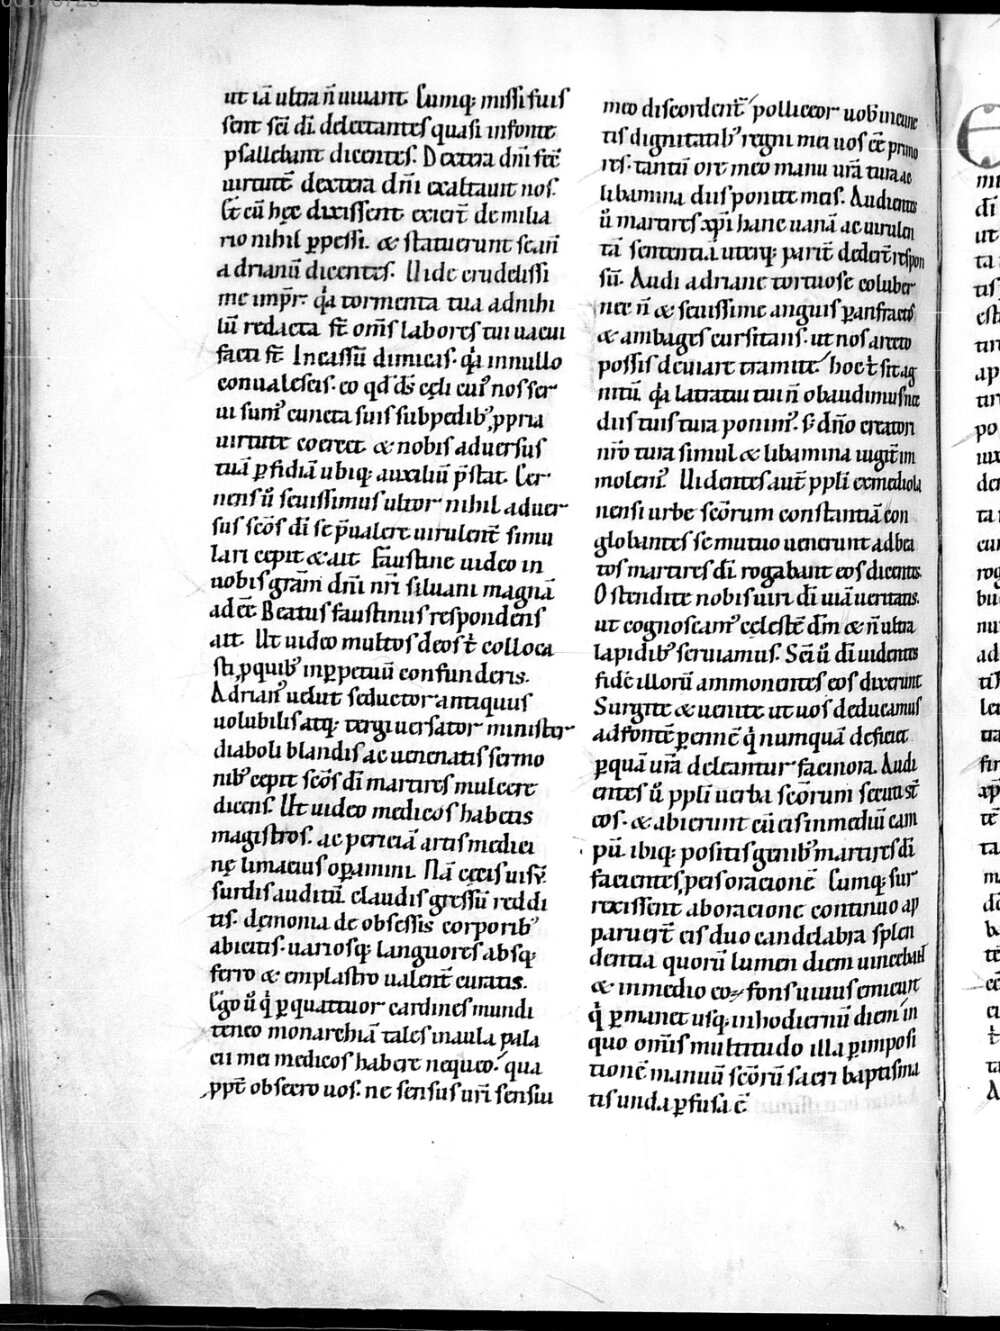 ut iā ultra ñ uiuant. Cumq; missi fuis
sent sc̄i dī. delectantes quasi in fonte
psallebant dicentes. Dextera dn̄i fec̄
uirtutē dextera dn̄i exaltauit nos.
Et cū hęc dixissent. exier̄t de milia
rio nihil ꝑpessi. & statuerunt sc̄am̄
adrianū dicentes. Uide crudelissi
me imp̄r. qa tormenta tua ad nihi
lū redacta st̄. om̄s labores tui uacui
facti st̄. Incassū dimicas. qa in nullo
conualescis. eo qd ds̄ cęli cui' nos ser
ui sum' cuncta suis sub pedib' ꝓpria
uirtute coercet. & nobis aduersus
tuā ꝑfidiā ubiq; auxiliū p̄stat. Cer
nens ū seuissimus ultor nihil aduer
sus scōs dī se p̄ualere uirulent̄ simu
lari cepit & ait. Faustine uideo in
uobis grām dn̄i nr̄i siluani magnā
ad eē Beatus faustinus respondens
ait. Ut uideo multos deos t̄ colloca
sti, ꝓ quib' inꝑpetuū confunderis.
Adrian' uelut seductor antiquus
uolubilis atq; tergiuersator minister
diaboli blandis ac uenenatis sermo
nib' cepit scōs dī martires mulcere
dicens. Ut uideo medicos habetis
magistros. ac periciā artis medici
nę limacius oꝑamini. Nā cecis uisū.
surdis auditū. claudis gressū reddi
tis. demonia de obsessis corporib'
abicitis. uariosq; languores absq;
ferro & emplastro ualent̄ curatis.
Ego ū q ꝑ quattuor cardines mundi
teneo monarchiā tales in aula pala
cii mei medicos habere nequeo. qua
ꝓpt̄ obsecro uos. ne sensus ur̄i sensui
meo discordent̄ polliceor uob' in cunc
tis dignitatib' regni mei uos eē primo
res. tantū ore meo manu ur̄a tura ac
libamina diis ponite meis. Audientes
ū martires xp̄i hanc uanā ac uirulen
tā sententiā uterq; parit̄ deder̄t respon
sū. Audi adriane tortuose coluber
nec ñ & seuissime anguis ꝑ anfractus
& ambages cursitans. ut nos a recto
possis deuiare tramite. hoc t̄ sit ag
nitū. qa latratui tui ñ obaudimus nec
diis tuis tura ponim'. s; dn̄o creatori
nr̄o tura simul & libamina iugit̄ im
molem'. Uidentes aut̄ ppl̄i ex mediola
nensi urbe scōrum constantiā con
globantes se mutuo uenerunt ad bea
tos martires dī. rogabant eos dicentes.
Ostendite nobis uiri dī uiā ueritatis.
ut cognoscam' cęlestē dm̄ & ñ ultra
lapidib' seruiamus. Sc̄i ū dī uidentes
fidē illorū ammonentes eos dixerunt
Surgite & uenite ut uos deducamus
ad fontē ꝑennē q numquā deficiet.
ꝑ quā ur̄a deleantur facinora. Audi
entes ū ppl̄i uerba scōrum secuti st̄
eos. & abierunt cū eis in mediū cam
pū. ibiq; positis genib' martires dī
facientes, pcis oracionē Cumq; sur
rexissent ab oracione continuo ap
paruer̄t eis duo candelabra splen
dentia quorū lumen diem uincebat
& in medio eoꝝ fons uiuus emicuit
q ꝑmanet usq; in hodiernū diem in
quo om̄is multitudo illa ꝑ imposi
tionē manuū scōrū sacri baptisma
tis unda ꝑfusa ē